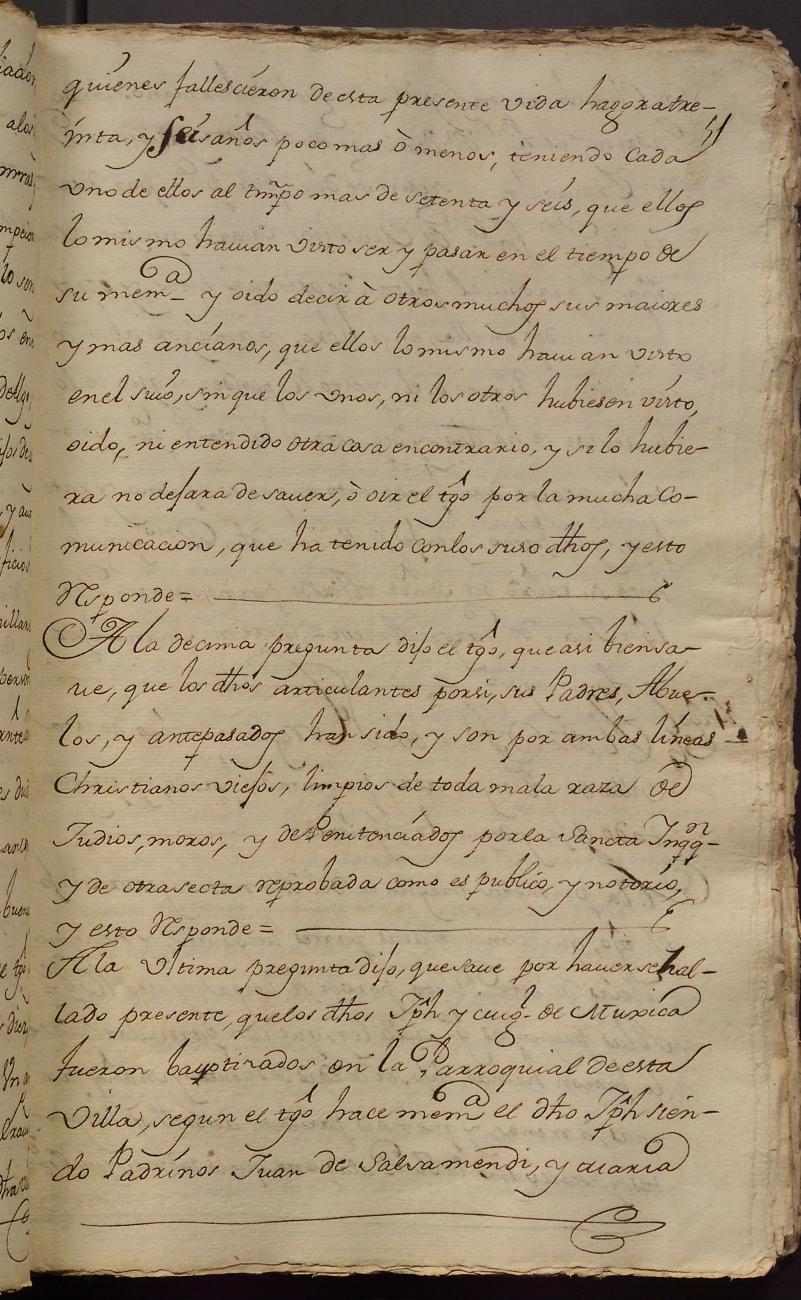 quienes fallescieron de esta presente vida haggora tre-
inta, y seis años poco mas ò menos, teniendo cada
vno de ellos al tmpo mas de setenta y seis, que ellos
lo mismo hauian visto ser y pasar en el tiempo de
su mema y oido decir à otros muchos sus maiores
y mas ancianos, que ellos lo mismo hauian visto
en el suio, sin que los vnos, ni los otros hubiesen visto,
oido, ni entendido otra cosa encontrario, y si lo hubie-
ra no dejara de sauer, ò oir el tgo por la mucha co-
municacion, que ha tenido con los suso dhos, y esto
responde =
A la decima pregunta dijo el tgo, que asi bien sa-
ue, que los dhos articulantes por si, sus Padres, Abue-
los, y antepasados han sido, y son por ambas lineas
Christianos viejos, limpios de toda mala raza de
Judios, moros, y de Penitenciados por la Sancta Inqqon
y de otra secta reprobada como es publico, y notorio,
y esto responde =
A la vltima pregunta dijo, que saue por hauerse hal-
lado presente, que los dhos Jph y de Muxica
fueron bauptizados en la Parroquial de esta
Villa, segun el tgo hace mema el dho Jph sien-
do Padrinos Juan de Salsamendi, y Maria